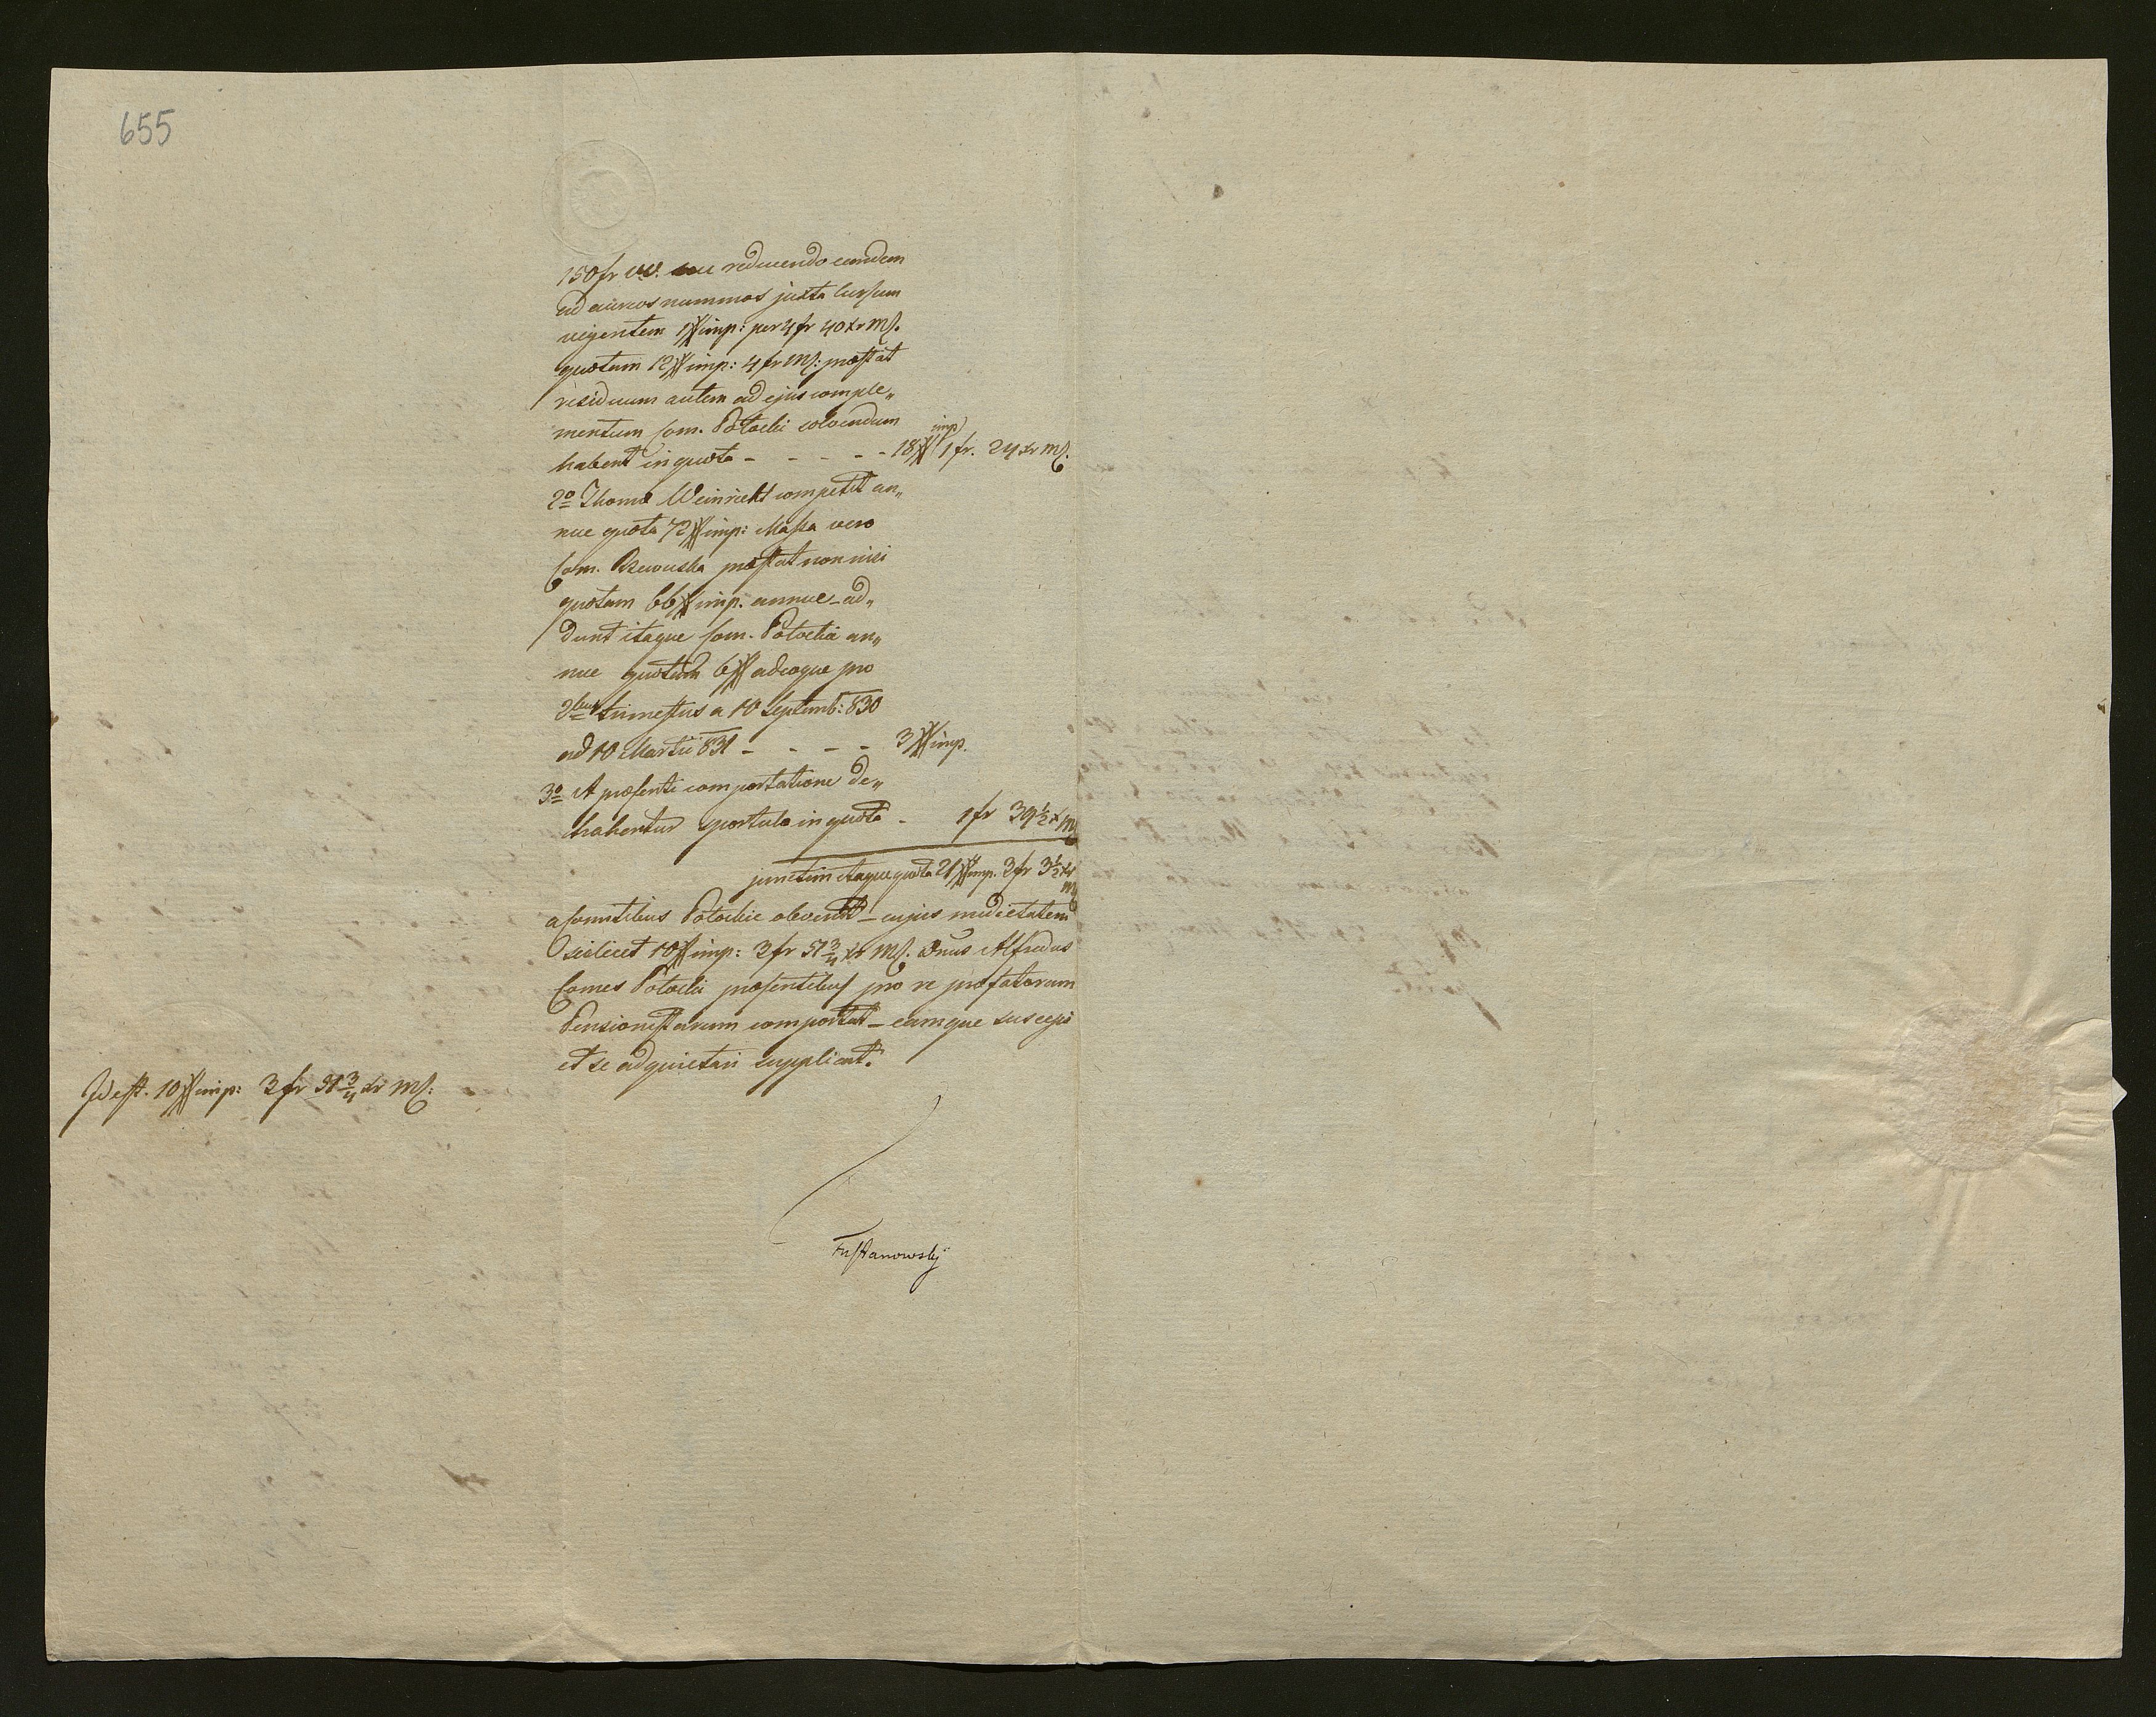 655
150 fr W. W. seu reducendo eundem
ad aureos nummos juxta cursum
vigentem 1 # imp: per 4 fr 40 xr Mf.
quotum 12 # imp: 4 fr Mf: præstat
residuum autem ad ejus comple„
mentum Com. Potocki solvendum
habent in quota - - - - - 18 # imp) 1 fr. 24 xr Mf.
2º Thomæ Weinricht competit an„
nue quota 72 # imp: Massa vero
Com. Rzewuska præstat non nisi
quotam 66 # imp. annue - ad„
dunt itaque Com. Potockia an„
nue quotam 6 # adeoque pro
2bus trimestris a 10 Septemb: 830
ad 10 Martii 831 - - - - 3 # imp.
3º A præsenti comportatione de„
trahentur sportula in quota - 1 fr 39 1/2 x Mf
junctim itaque quota 21 # imp. 3 fr 3 1/2 xr Mf
a Comitibus Potockie obvenit - cujus medietatem
scilicet 10 # imp: 3 fr 51 3/4 xr Mf. Dnus Alfredus
Comes Potocki præsentibus pro re præfatorum
Pensionistarum comportat - eamque suscipi
et se adquietari supplicat.
Id est. 10 # imp: 3 fr 51 3/4 xr Mf:
Tustanowskj